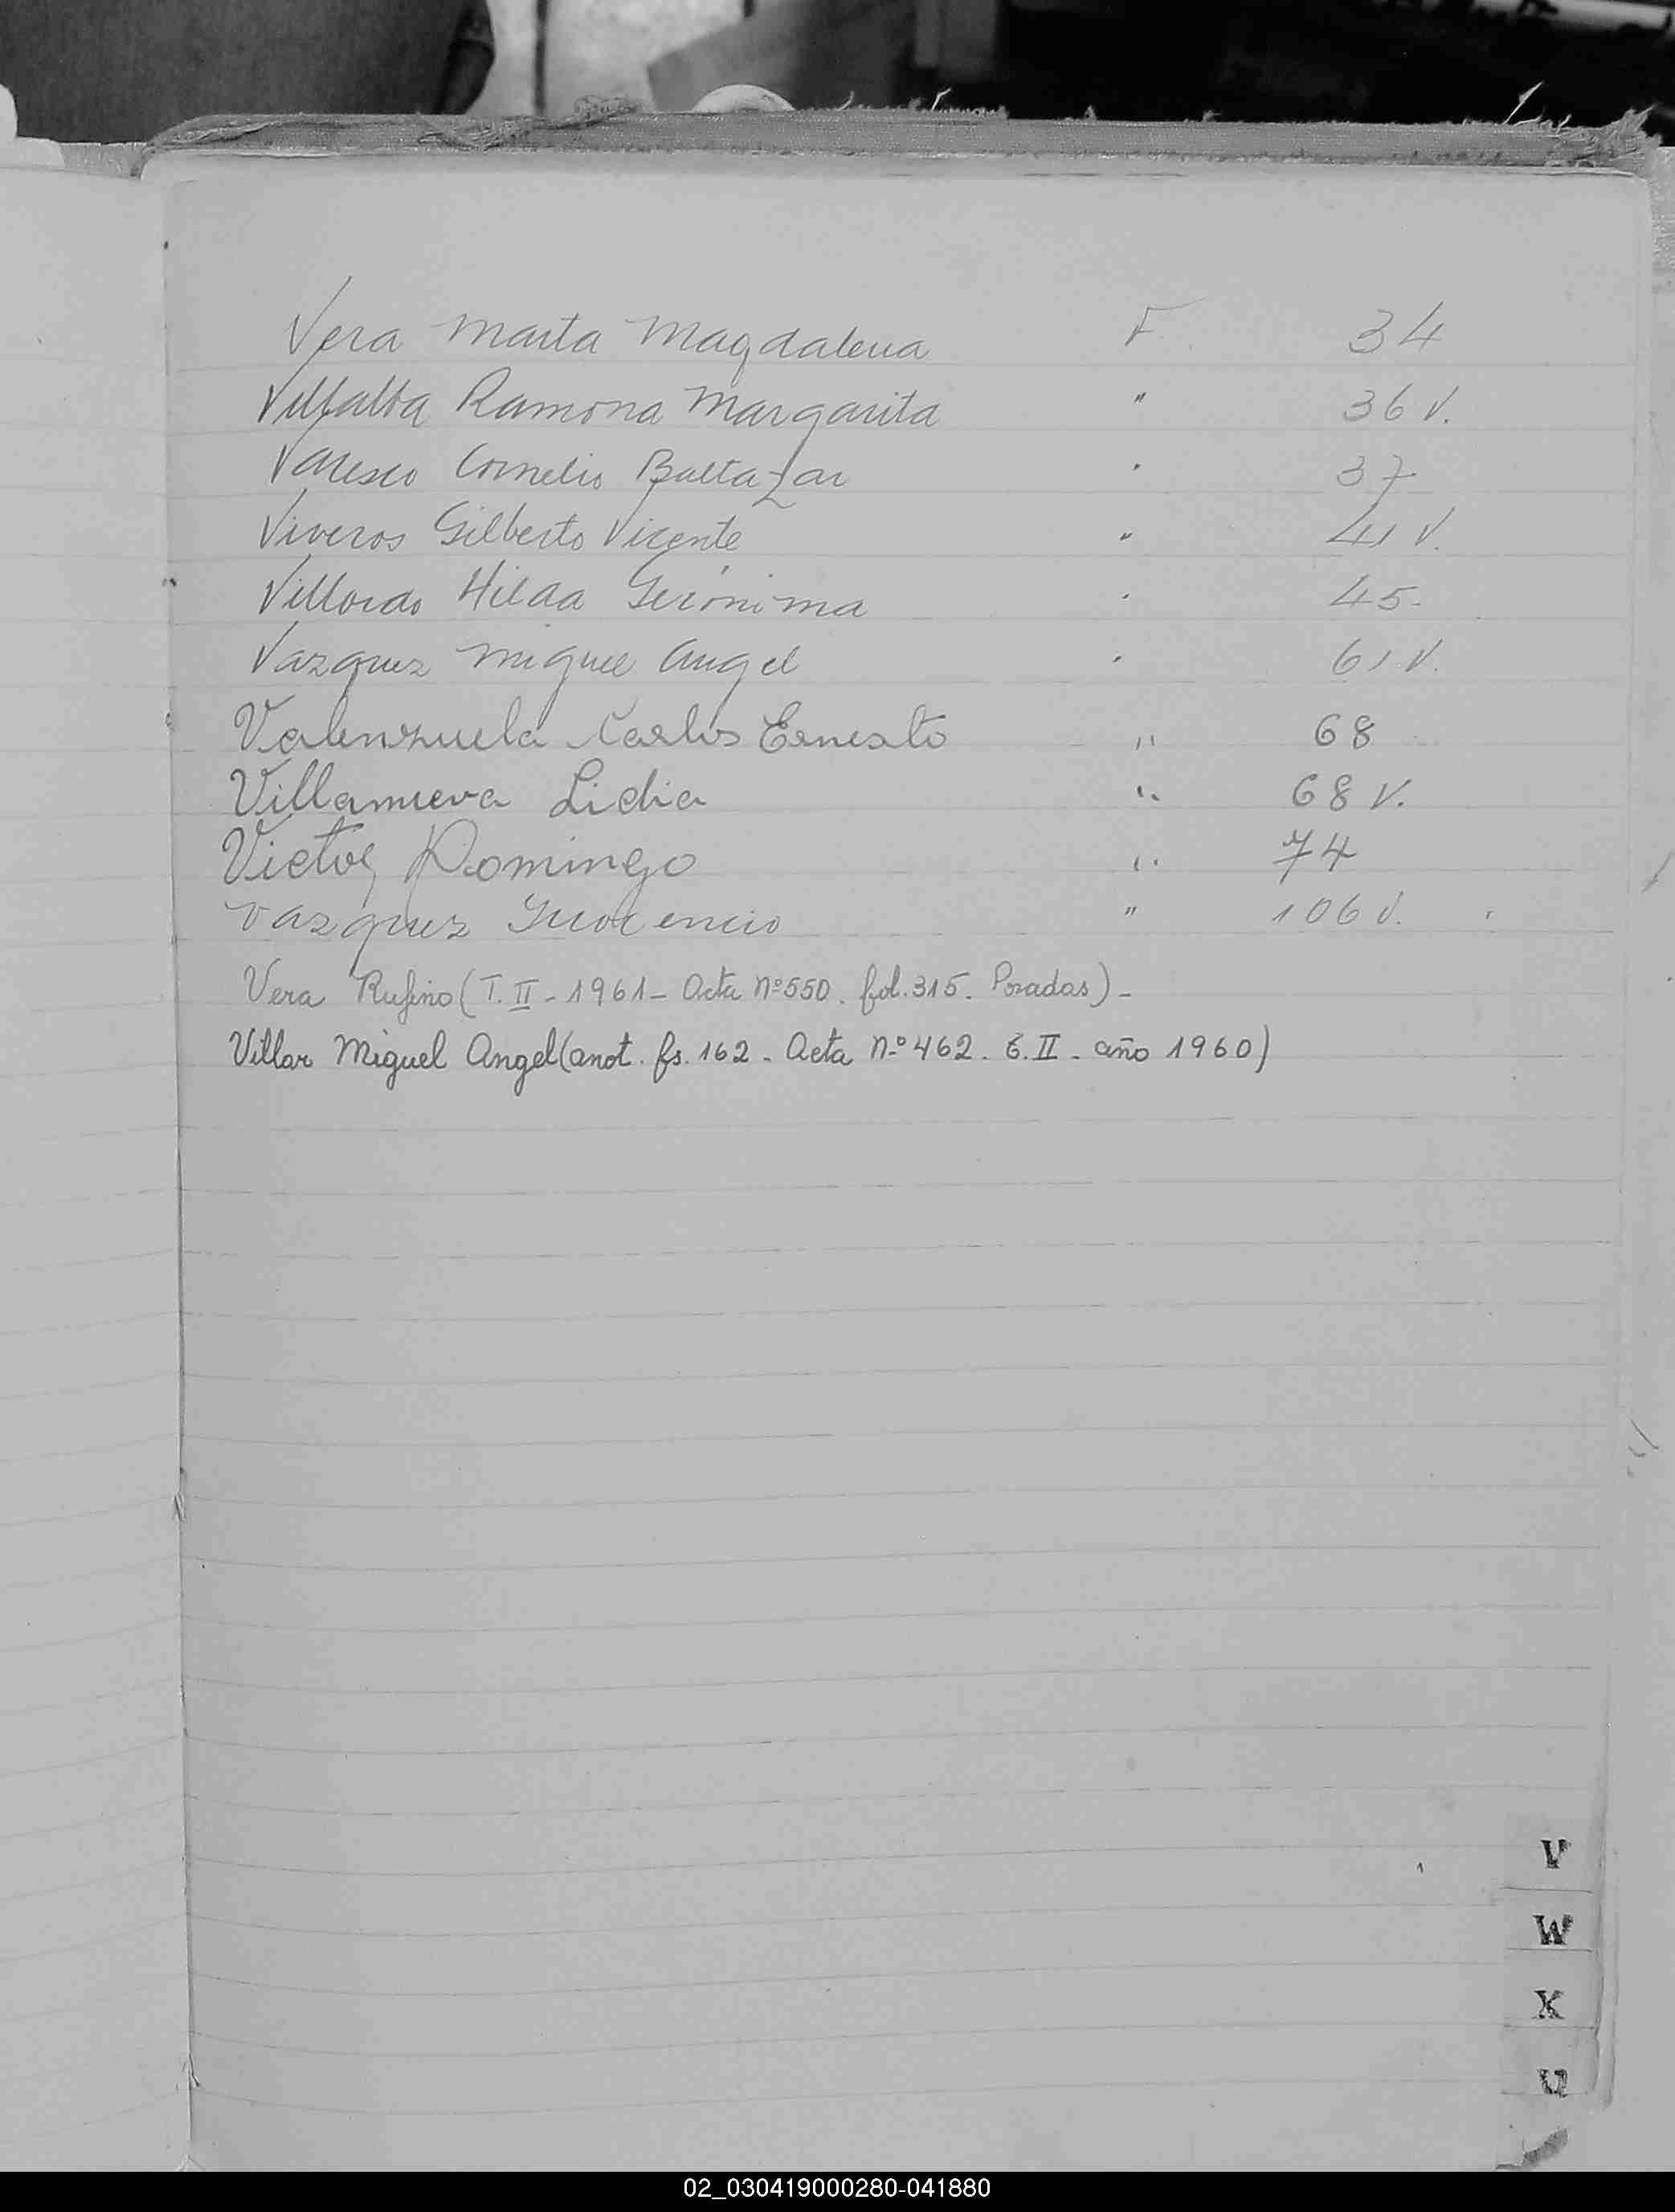 Vera Marta Magdalena F. 34
Villalba Ramona Margarita " 36 V.
Cornelio Baltazar " 37
Viveros Gilberto Vicente " 41 V.
Hilda Gerónima " 45.
Vazquez Miguel Angel " 61 V.
Valenzuela Carlos Ernesto " 68
Villanueva Lidia " 68 V.
Victor Domingo " 74
Vazquez Inocencio " 106 V.
Vera Rufino (T. II - 1961 - Acta nº 550. fol. 315. Posadas) -
Villar Miguel Angel (anot. fs. 162 - Acta n.º 462. T. II - año 1960)
V
W
X
02_030419000280-041880